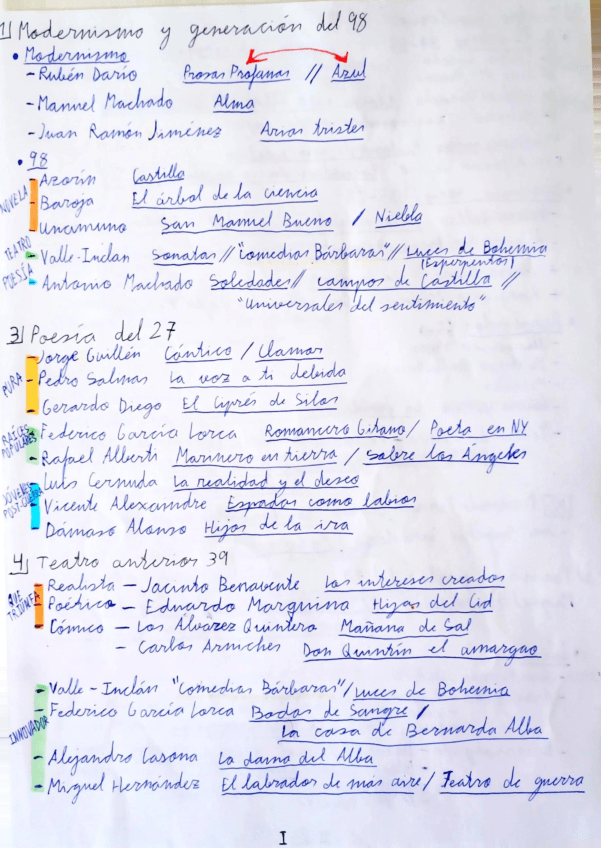 1) Modernismo y generación del 98
• Modernismo
- Rubén Darío Prosas Profanas // Azul
- Manuel Machado Alma
- Juan Ramón Jiménez Arias tristes
• 98
NOVELA
- Azorín Castilla
- Baroja El árbol de la ciencia
- Unamuno San Manuel Bueno / Niebla
TEATRO
- Valle-Inclan Sonatas // "Comedias Bárbaras" // Luces de Bohemia
(Esperpentos)
POESÍA
- Antonio Machado Soledades // Campos de Castilla //
"Universales del sentimiento"
3) Poesía del 27
PURA
- Jorge Guillén Cántico / Clamor
- Pedro Salinas La voz a ti debida
- Gerardo Diego El Ciprés de Silos
RAÍCES POPULARES
- Federico García Lorca Romancero Gitano / Poeta en NY
- Rafael Alberti Marinero en tierra / Sobre los Ángeles
JÓVENES
- Luis Cernuda La realidad y el deseo
- Vicente Aleixandre Espadas como labios
- Dámaso Alonso Hijos de la ira
4) Teatro anterior 39
QUE TRIUNFA
- Realista - Jacinto Benavente Los intereses creados
- Poético - Eduardo Marquina Hijas del Cid
- Cómico - Los Álvarez Quintero Mañana de Sal
- Carlos Arniches Don Quintín el amargao
INNOVADOR
- Valle-Inclán "Comedias Bárbaras" / Luces de Bohemia
- Federico García Lorca Bodas de Sangre /
La casa de Bernarda Alba
- Alejandro Casona La dama del Alba
- Miguel Hernández El labrador de más aire / Teatro de guerra
I